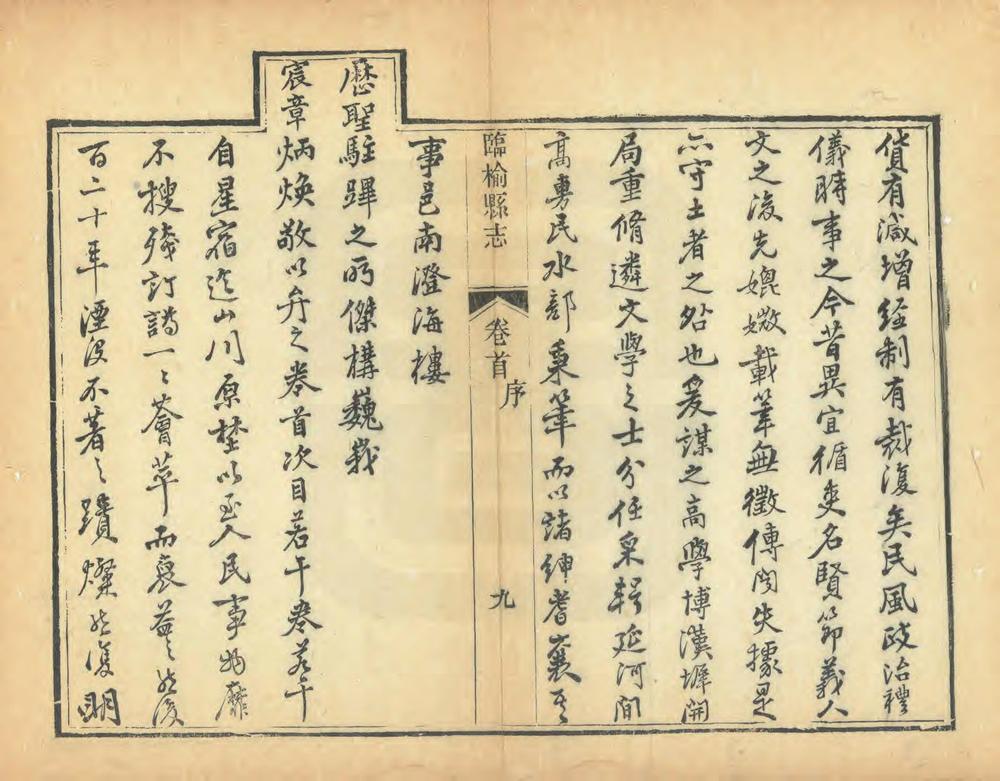 貨有減增經制有裁復矣民風政治禮
儀時事之今昔異宜循吏名賢節義人
文之後先媲媺載筆無徵傳聞失據是
亦守土者之咎也爰謀之高學博漢墀開
局重脩遴文學之士分任采輯延河間
高勇民水部秉筆而以諸紳耆襄其
臨榆縣志
卷首
序
九
事邑南澄海樓
歷聖駐蹕之所傑構巍峩
宸章炳煥敬以弁之卷首次目若干卷若干
自星宿迄山川原埜以至人民事物靡
不搜殘訂譌一〻薈萃而裒益之然後
百二十年湮沒不著之蹟燦然復明